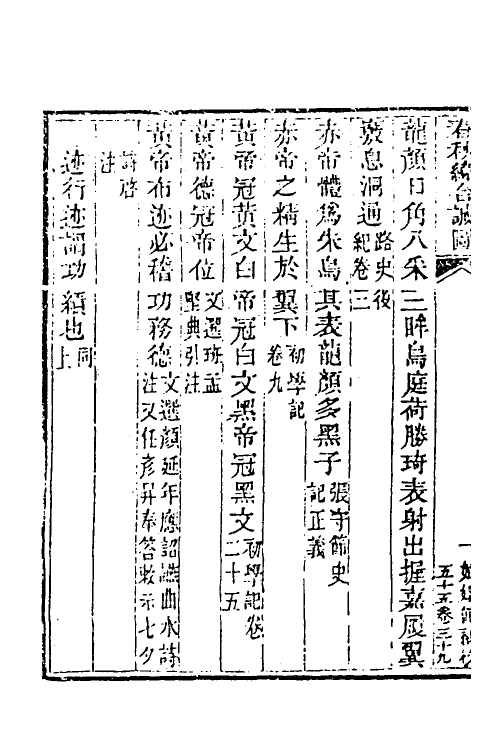 春秋緯合誠圖
五十五卷三十九
龍顏日角八采三眸鳥庭荷勝琦表射出握嘉履翼
竅息洞通路史後紀卷三
赤帝體爲朱鳥其表龍顏多黑子張守節史記正義
赤帝之精生於翼下初學記卷九
黃帝冠黃文白帝冠白文黑帝冠黑文初學記卷二十五
黃帝德冠帝位文選班孟堅典引注
黃帝布迹必稽功務德文選顏延年應詔讌曲水詩注又任彥昇奉答敕示七夕
詩啓注
迹行迹謂功績也同上